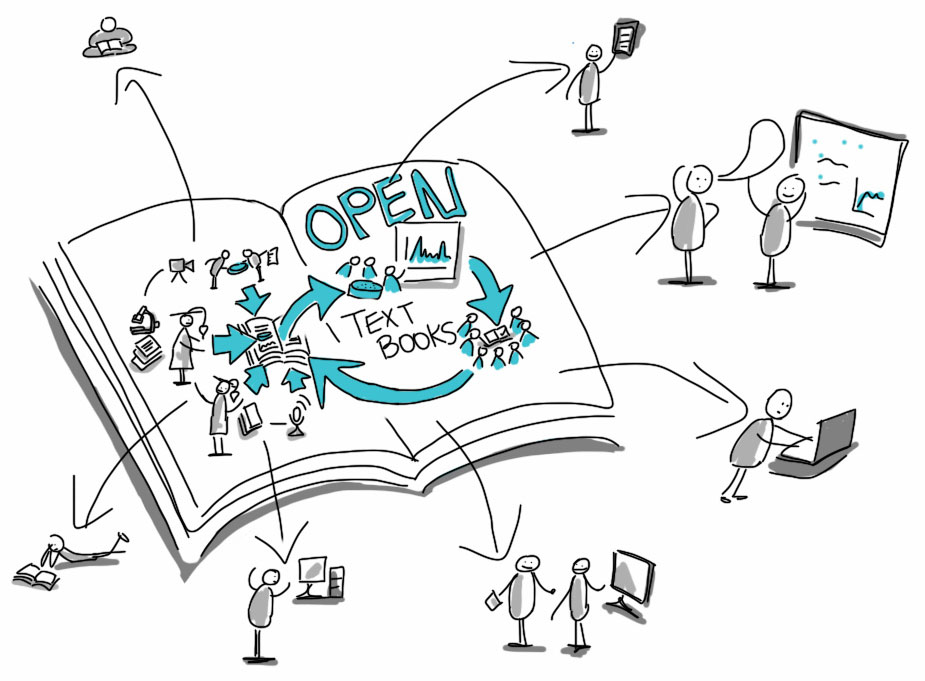 OPEN
TEXT
BOOKS